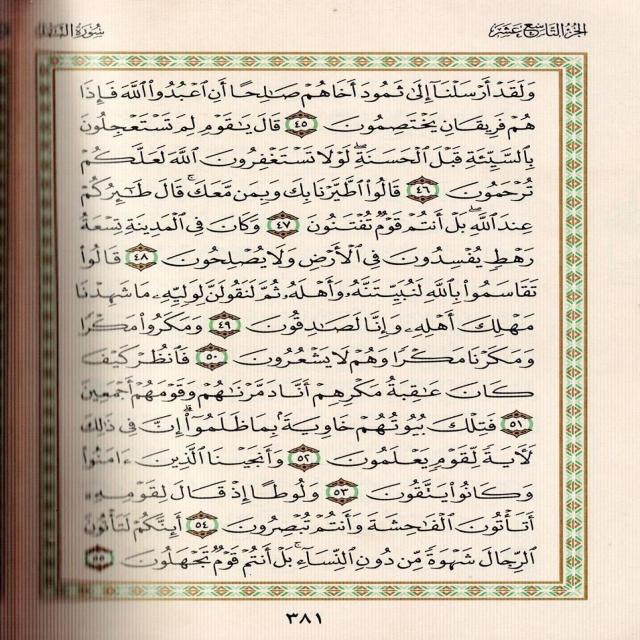 الجزء التاسع عشر
سورة النمل
ولقد أرسلنا إلى ثمود أخاهم صالحا أن اعبدوا الله فإذا
هم فريقان يختصمون ٤٥ قال ياقوم لم تستعجلون
بالسيئة قبل الحسنة لولا تستغفرون الله لعلكم
ترحمون ٤٦ قالوا اطيرنا بك وبمن معك قال طائركم
عند الله بل أنتم قوم تفتنون ٤٧ وكان في المدينة تسعة
رهط يفسدون في الأرض ولا يصلحون ٤٨ قالوا
تقاسموا بالله لنبيتنه وأهله ثم لنقولن لوليه ما شهدنا
مهلك أهله وإنا لصادقون ٤٩ ومكروا مكرا
ومكرنا مكرا وهم لا يشعرون ٥٠ فانظر كيف
كان عاقبة مكرهم أنا دمرناهم وقومهم أجمعين
٥١ فتلك بيوتهم خاوية بما ظلموا إن في ذلك
لآية لقوم يعلمون ٥٢ وأنجينا الذين ءامنوا
وكانوا يتقون ٥٣ ولوطا إذ قال لقومه
أتأتون الفاحشة وأنتم تبصرون ٥٤ أئنكم لتأتون
الرجال شهوة من دون النساء بل أنتم قوم تجهلون ٥٥
٣٨١